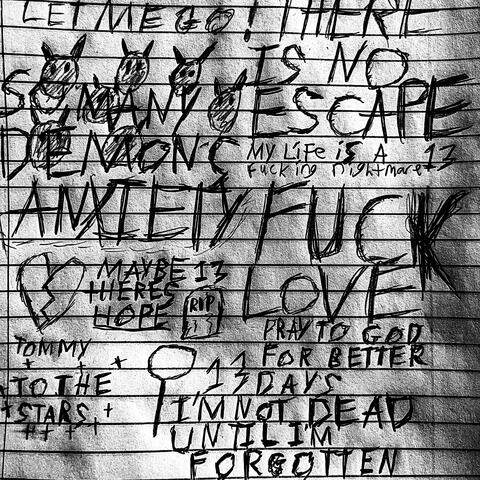 LET ME GO! THERE
IS NO
SO MANY ESCAPE
DEMONS
MY LiFe iS A 13
Fucking nightmare
ANXIETY FUCK
LOVE
MAYBE 13
THERES
HOPE RIP
PRAY TO GOD
FOR BETTER
DAYS
TOMMY
TO THE
STARS
13
I'M NOT DEAD
UNTIL I'M
FORGOTTEN